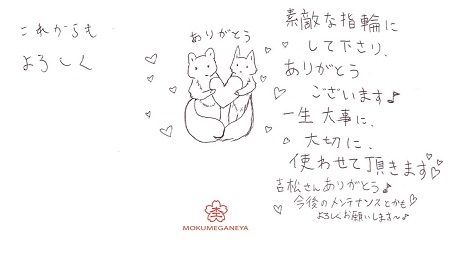 これからも
よろしく
ありがとう
素敵な指輪に
して下さり、
ありがとう
ございます♪
一生大事に、
大切に、
使わせて頂きます♡♡
吉松さんありがとう♪
今後のメンテナンスとかも
よろしくお願いします〜♪
MOKUMEGANEYA